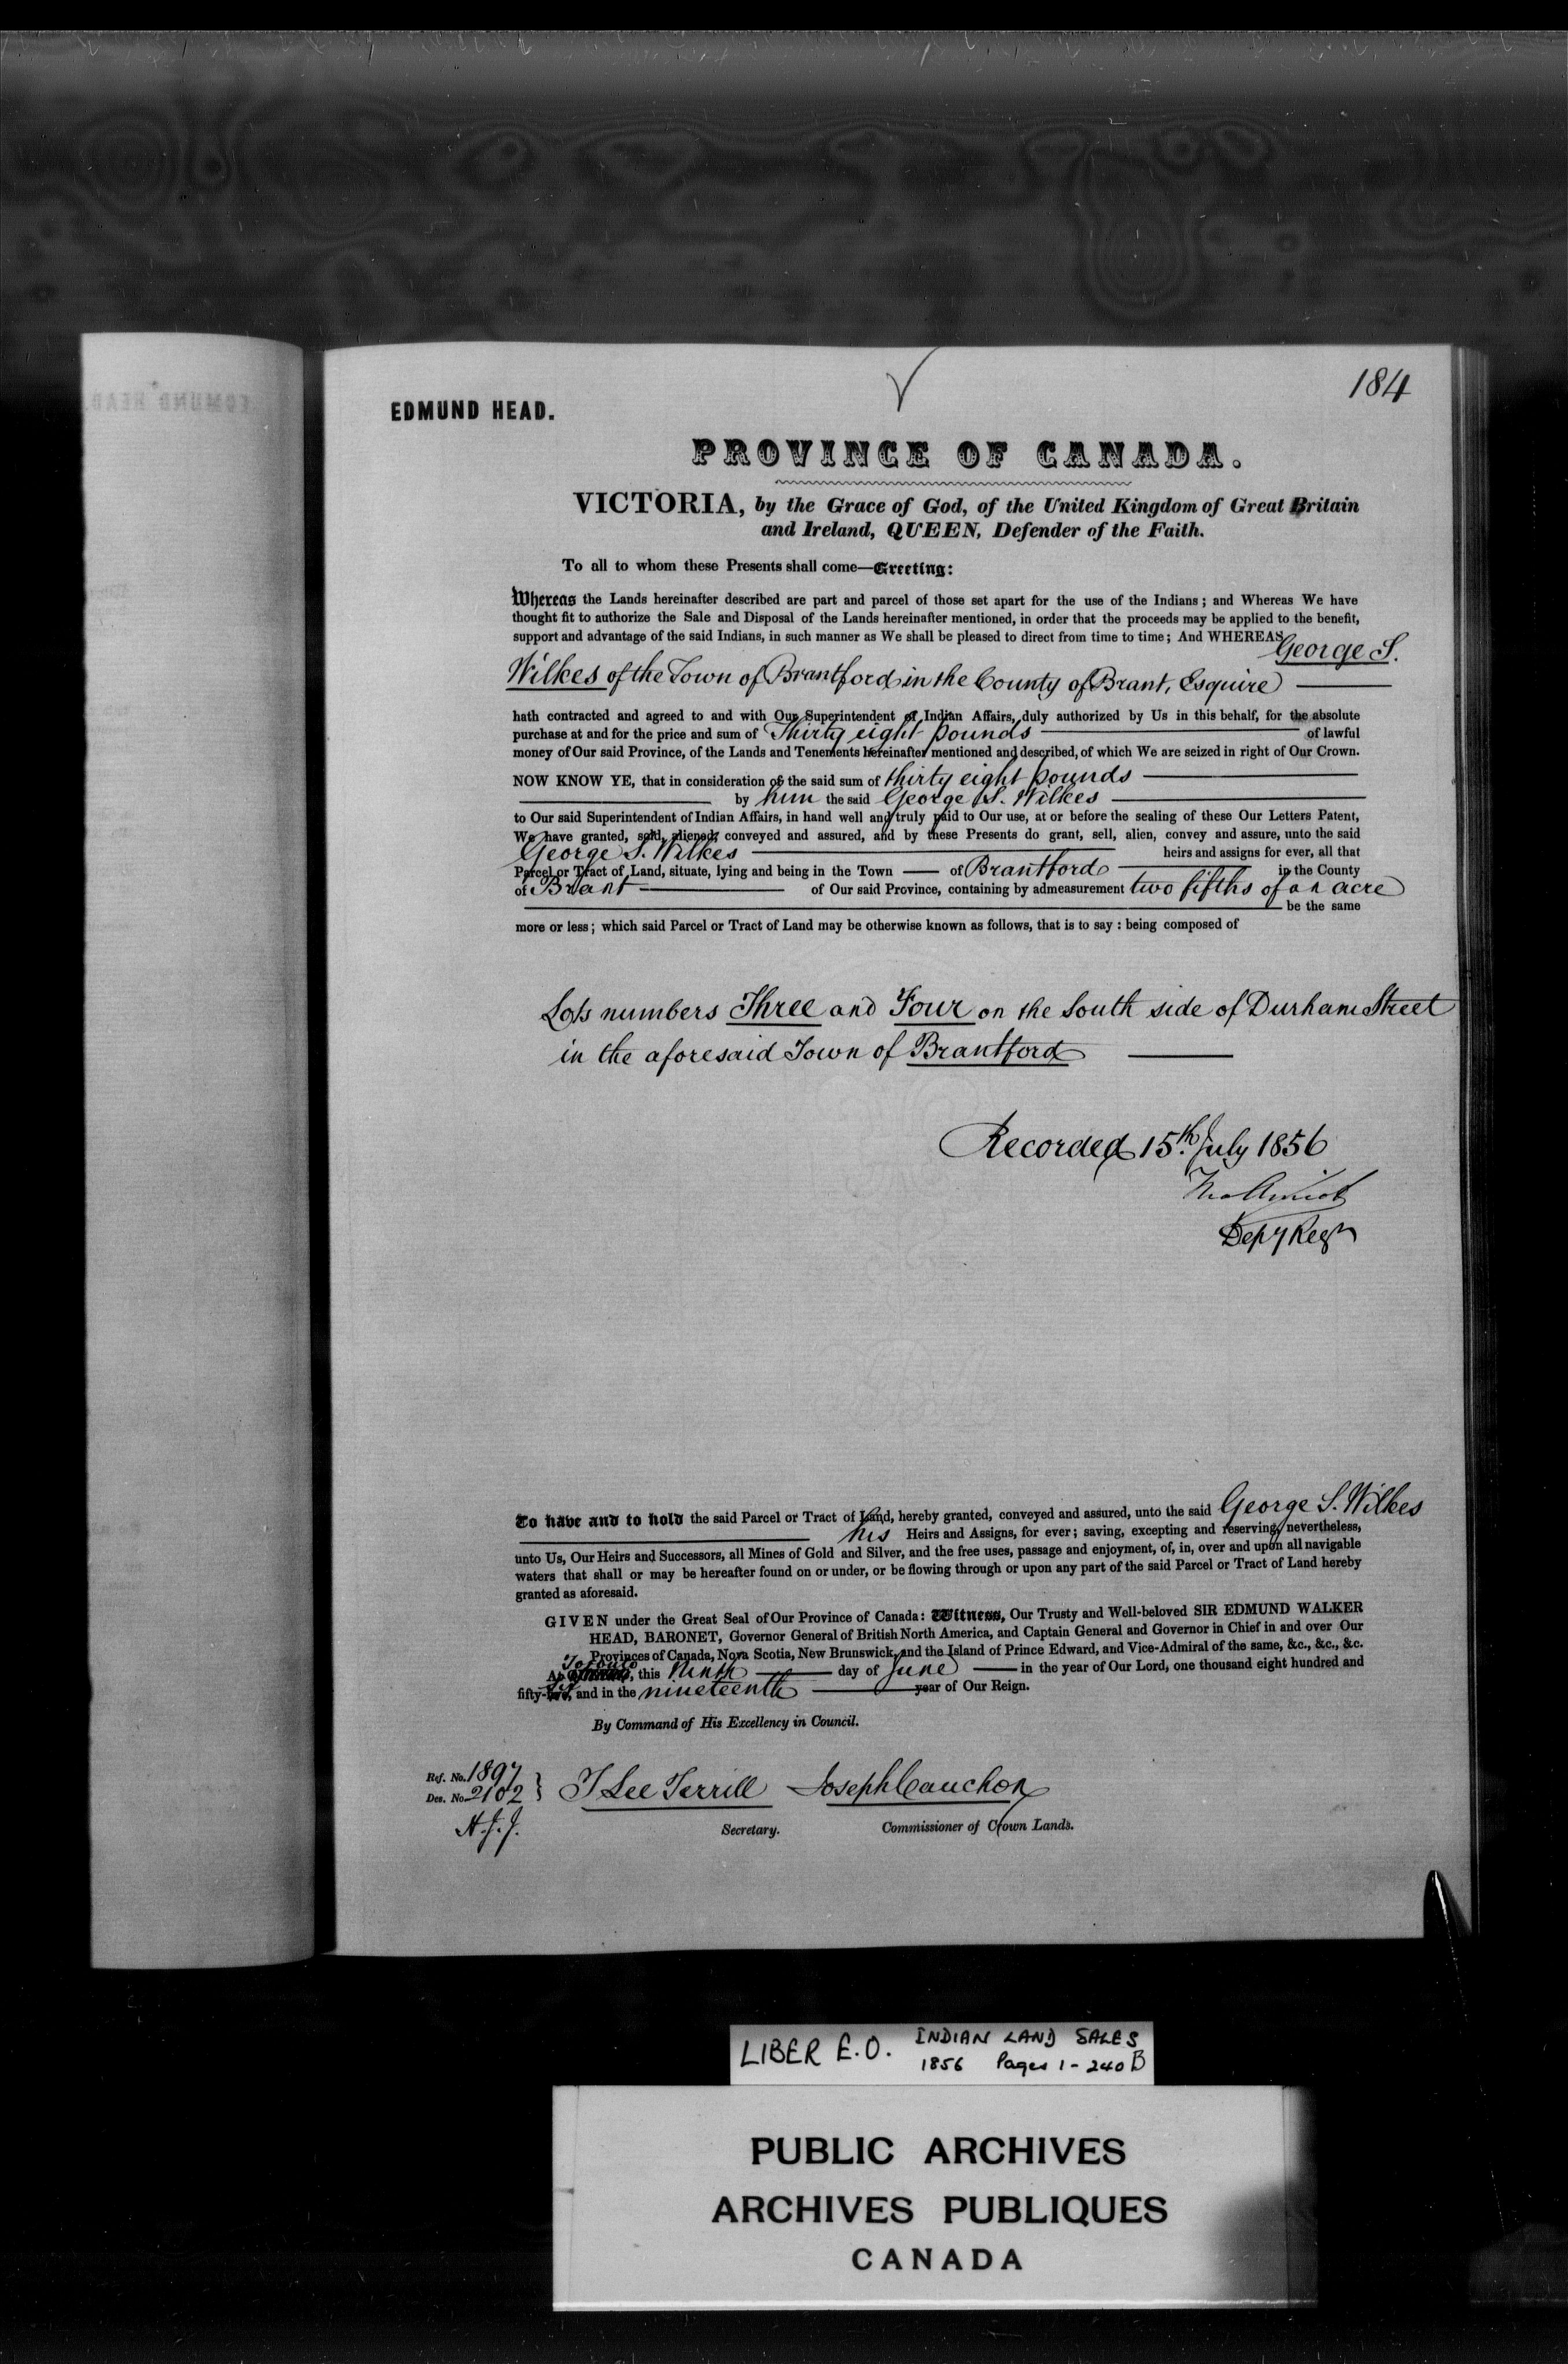 184
EDMUND HEAD.
PROVINCE OF CANADA.
VICTORIA, by the Grace of God, of the United Kingdom of Great Britain
and Ireland, QUEEN, Defender of the Faith.
To all to whom these Presents shall come—Greeting:
Whereas the Lands hereinafter described are part and parcel of those set apart for the use of the Indians; and Whereas We have
thought fit to authorize the Sale and Disposal of the Lands hereinafter mentioned, in order that the proceeds may be applied to the benefit,
support and advantage of the said Indians, in such manner as We shall be pleased to direct from time to time; And WHEREAS George S.
Wilkes of the Town of Brantford in the County of Brant, Esquire
hath contracted and agreed to and with Our Superintendent of Indian Affairs, duly authorized by Us in this behalf, for the absolute
purchase at and for the price and sum of Thirty eight pounds of lawful
money of Our said Province, of the Lands and Tenements hereinafter mentioned and described, of which We are seized in right of Our Crown.
NOW KNOW YE, that in consideration of the said sum of thirty eight pounds
by him the said George S. Wilkes
to Our said Superintendent of Indian Affairs, in hand well and truly paid to Our use, at or before the sealing of these Our Letters Patent,
We have granted, sold, aliened, conveyed and assured, and by these Presents do grant, sell, alien, convey and assure, unto the said
George S. Wilkes heirs and assigns for ever, all that
Parcel or Tract of Land, situate, lying and being in the Town of Brantford in the County
of Brant of Our said Province, containing by admeasurement two fifths of an acre
be the same
more or less; which said Parcel or Tract of Land may be otherwise known as follows, that is to say: being composed of
Lots numbers Three and Four on the South side of Durham Street
in the aforesaid Town of Brantford
Recorded 15th. July 1856
Depy Regr
To have and to hold the said Parcel or Tract of Land, hereby granted, conveyed and assured, unto the said George S. Wilkes
his Heirs and Assigns, for ever; saving, excepting and reserving, nevertheless,
unto Us, Our Heirs and Successors, all Mines of Gold and Silver, and the free uses, passage and enjoyment, of, in, over and upon all navigable
waters that shall or may be hereafter found on or under, or be flowing through or upon any part of the said Parcel or Tract of Land hereby
granted as aforesaid.
GIVEN under the Great Seal of Our Province of Canada: Witness, Our Trusty and Well-beloved SIR EDMUND WALKER
HEAD, BARONET, Governor General of British North America, and Captain General and Governor in Chief in and over Our
Provinces of Canada, Nova Scotia, New Brunswick, and the Island of Prince Edward, and Vice-Admiral of the same, &c., &c., &c.
At Toronto, this Ninth day of June in the year of Our Lord, one thousand eight hundred and
fifty-six, and in the nineteenth year of Our Reign.
By Command of His Excellency in Council.
Ref. No. 1897
Des. No. 2102
A.J.J.
T Lee Terrill Joseph Cauchon
Secretary. Commissioner of Crown Lands.
LIBER E.O. INDIAN LAND SALES
1856 Pages 1-240B
PUBLIC ARCHIVES
ARCHIVES PUBLIQUES
CANADA